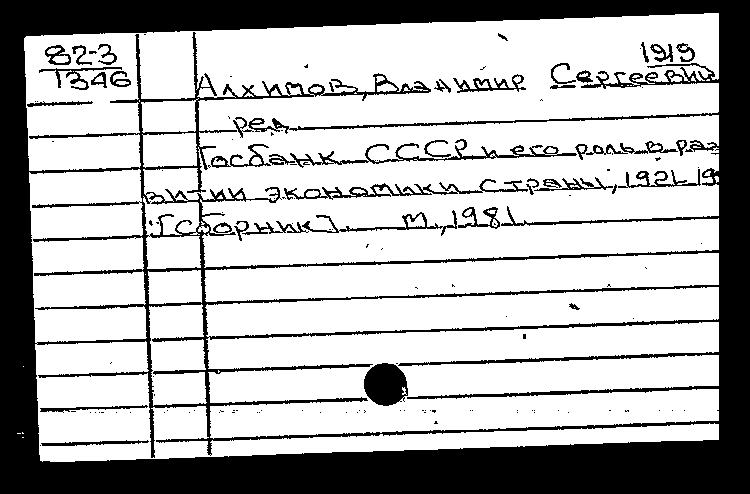 82-3
1346
1919
Алхимов, Владимир Сергеевич
ред.
Госбанк СССР и его роль в раз
витии экономики страны, 1921-19
[Сборник]. М., 1981.